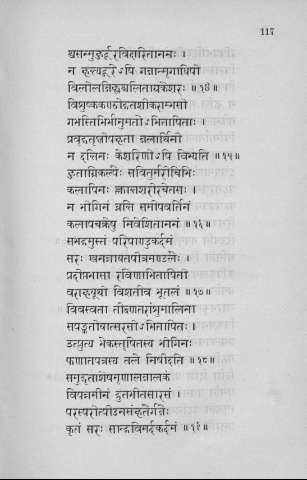 117
श्वसन्मुहुर्दूरविदारिताननः ।
न हन्त्यदूरेऽपि गजान्मृगाधिपो
विलोलजिह्वश्चलिताग्रकेशरः ॥१४॥
विशुष्ककण्ठोद्गतशीकराम्भसो
गभस्तिभिर्भानुमतोऽभितापिताः ।
प्रवृद्धतृष्णोपहता जलार्थिनो
न दन्तिनः केशरिणोऽपि बिभ्यति ॥१५॥
हुताग्निकल्पैः सवितुर्मरीचिभिः
कलापिनः क्लान्तशरीरचेतसः ।
न भोगिनं घ्नन्ति समीपवर्तिनं
कलापचक्रेषु निवेशिताननं ॥१६॥
सभद्रमुस्तं परिपाण्डुकर्दमं
सरः खनन्नायतपोत्रमण्डलैः ।
प्रदीप्तभासा रविणाभितापितो
वराहयूथो विशतीव भूतलं ॥१७॥
विवस्वता तीक्ष्णतरांशुमालिना
सपङ्कतोयात्सरसोऽभितापितः ।
उत्प्लुत्य भेकस्तृषितस्य भोगिनः
फणातपत्रस्य तले निषीदति ॥१८॥
समुद्धृताशेषमृणालजालकं
विपन्नमीनं द्रुतभीतसारसं ।
परस्परोत्पीडनसंहतैर्गजैः
कृतं सरः सान्द्रविमर्दकर्दमं ॥१९॥